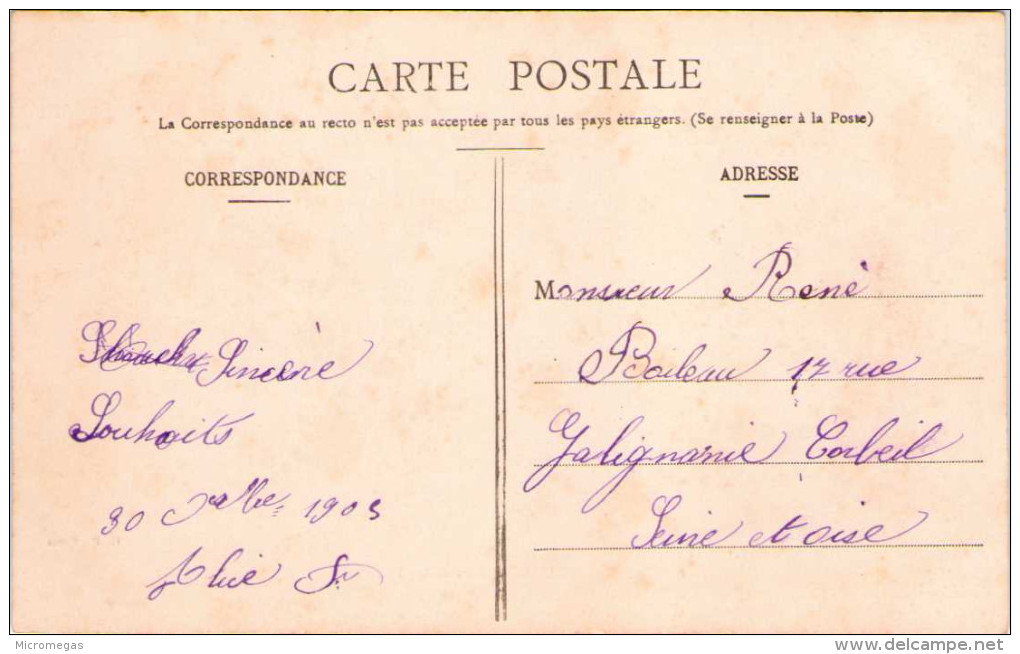 CARTE POSTALE
La Correspondance au recto n'est pas acceptée par tous les pays étrangers. (Se renseigner à la Poste)
CORRESPONDANCE
Sincère
Souhaits
30 Xbre 1903
ADRESSE
Monsieur René
Boileau 17 rue
Galignanie Corbeil
Seine et oise
Micromegas
www.delcampe.net